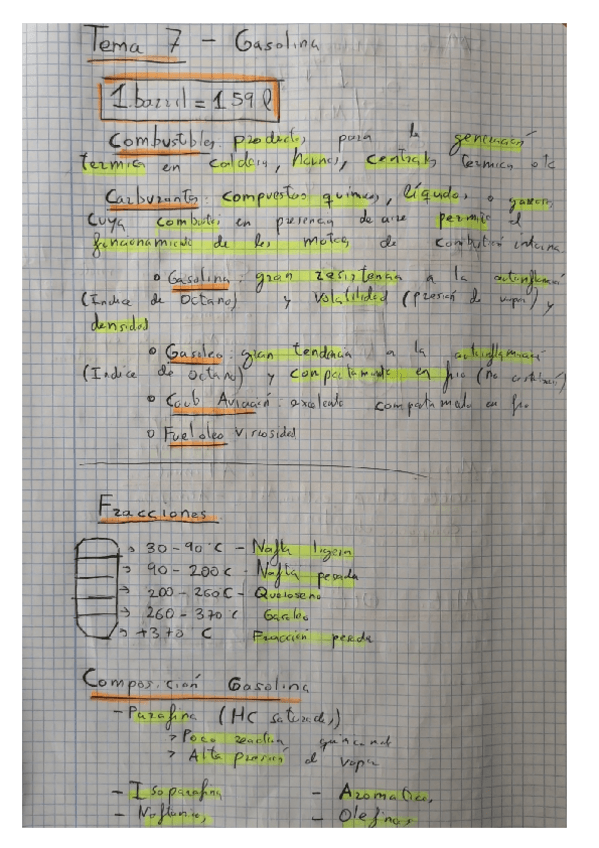 Tema 7 - Gasolina
1 barril = 159 l
Combustibles productos para la generación
termica en caldera, hornos, centrales termica etc
Carburante: compuestos quimicos, líquidos o gaseosos
cuya combustión en presencia de aire permite el
funcionamiento de los motores de combustión interna
o Gasolina: gran resistencia a la autoinflamació
(Indice de Octano) y volatilidad (presión de vapor) y
densidad
o Gasoleo: gran tendencia a la autoinflamació
(Indice de Octano) y comportamiento en frio (no
o Comb Aviación: excelente comportamiento en frio
o Fueloleo viscosidad
Fracciones
→ 30 - 90°C - Nafta ligera
→ 90 - 200C - Nafta pesada
→ 200 - 260C - Queroseno
→ 260 - 370°C Gasoleo
→ +370 C Fracción pesada
Composición Gasolina
- Parafina (HC saturados)
> Poco reactiva
> Alta presión de vapor
- Isoparafina - Aromaticos
- Naftenicos - Olefinas